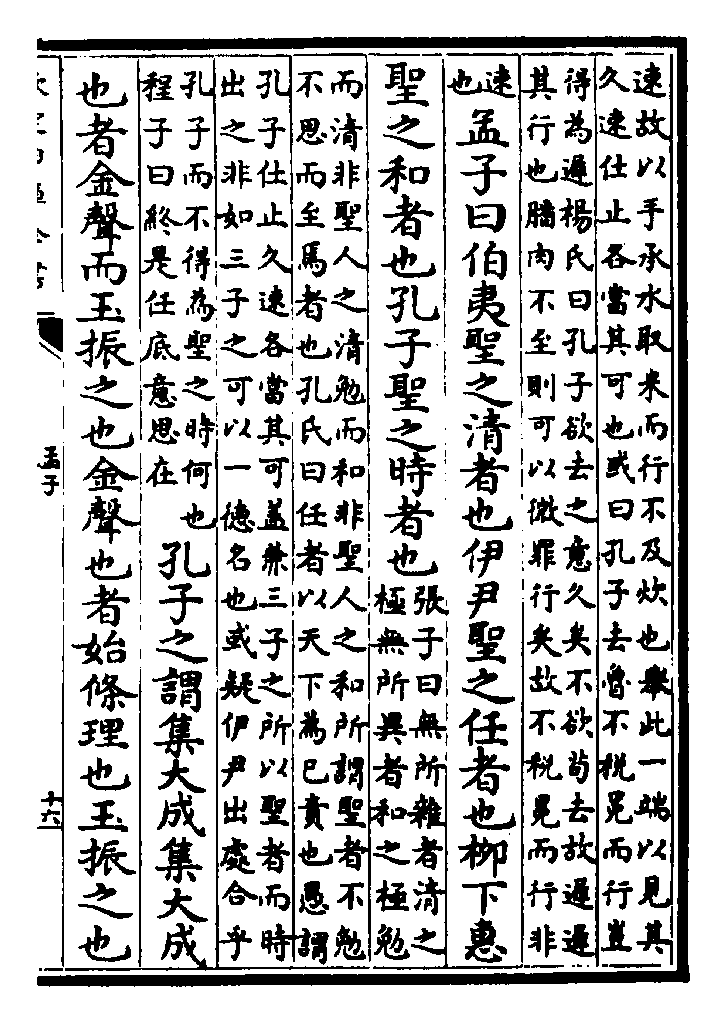 速故以手承水取米而行不及炊也舉此一端以見其
久速仕止各當其可也或曰孔子去魯不稅冕而行豈
得為遲楊氏曰孔子欲去之意久矣不欲茍去故遲遲
其行也膰肉不至則可以微罪行矣故不稅冕而行非
速
也
孟子曰伯夷聖之清者也伊尹聖之任者也柳下惠
聖之和者也孔子聖之時者也
張子曰無所雜者清之
極無所異者和之極勉
而清非聖人之清勉而和非聖人之和所謂聖者不勉
不思而至焉者也孔氏曰任者以天下為己責也愚謂
孔子仕止久速各當其可蓋兼三子之所以聖者而時
出之非如三子之可以一德名也或疑伊尹出處合乎
孔子而不得為聖之時何也
程子曰終是任底意思在
孔子之謂集大成集大成
也者金聲而玉振之也金聲也者始條理也玉振之也
孟子
十六